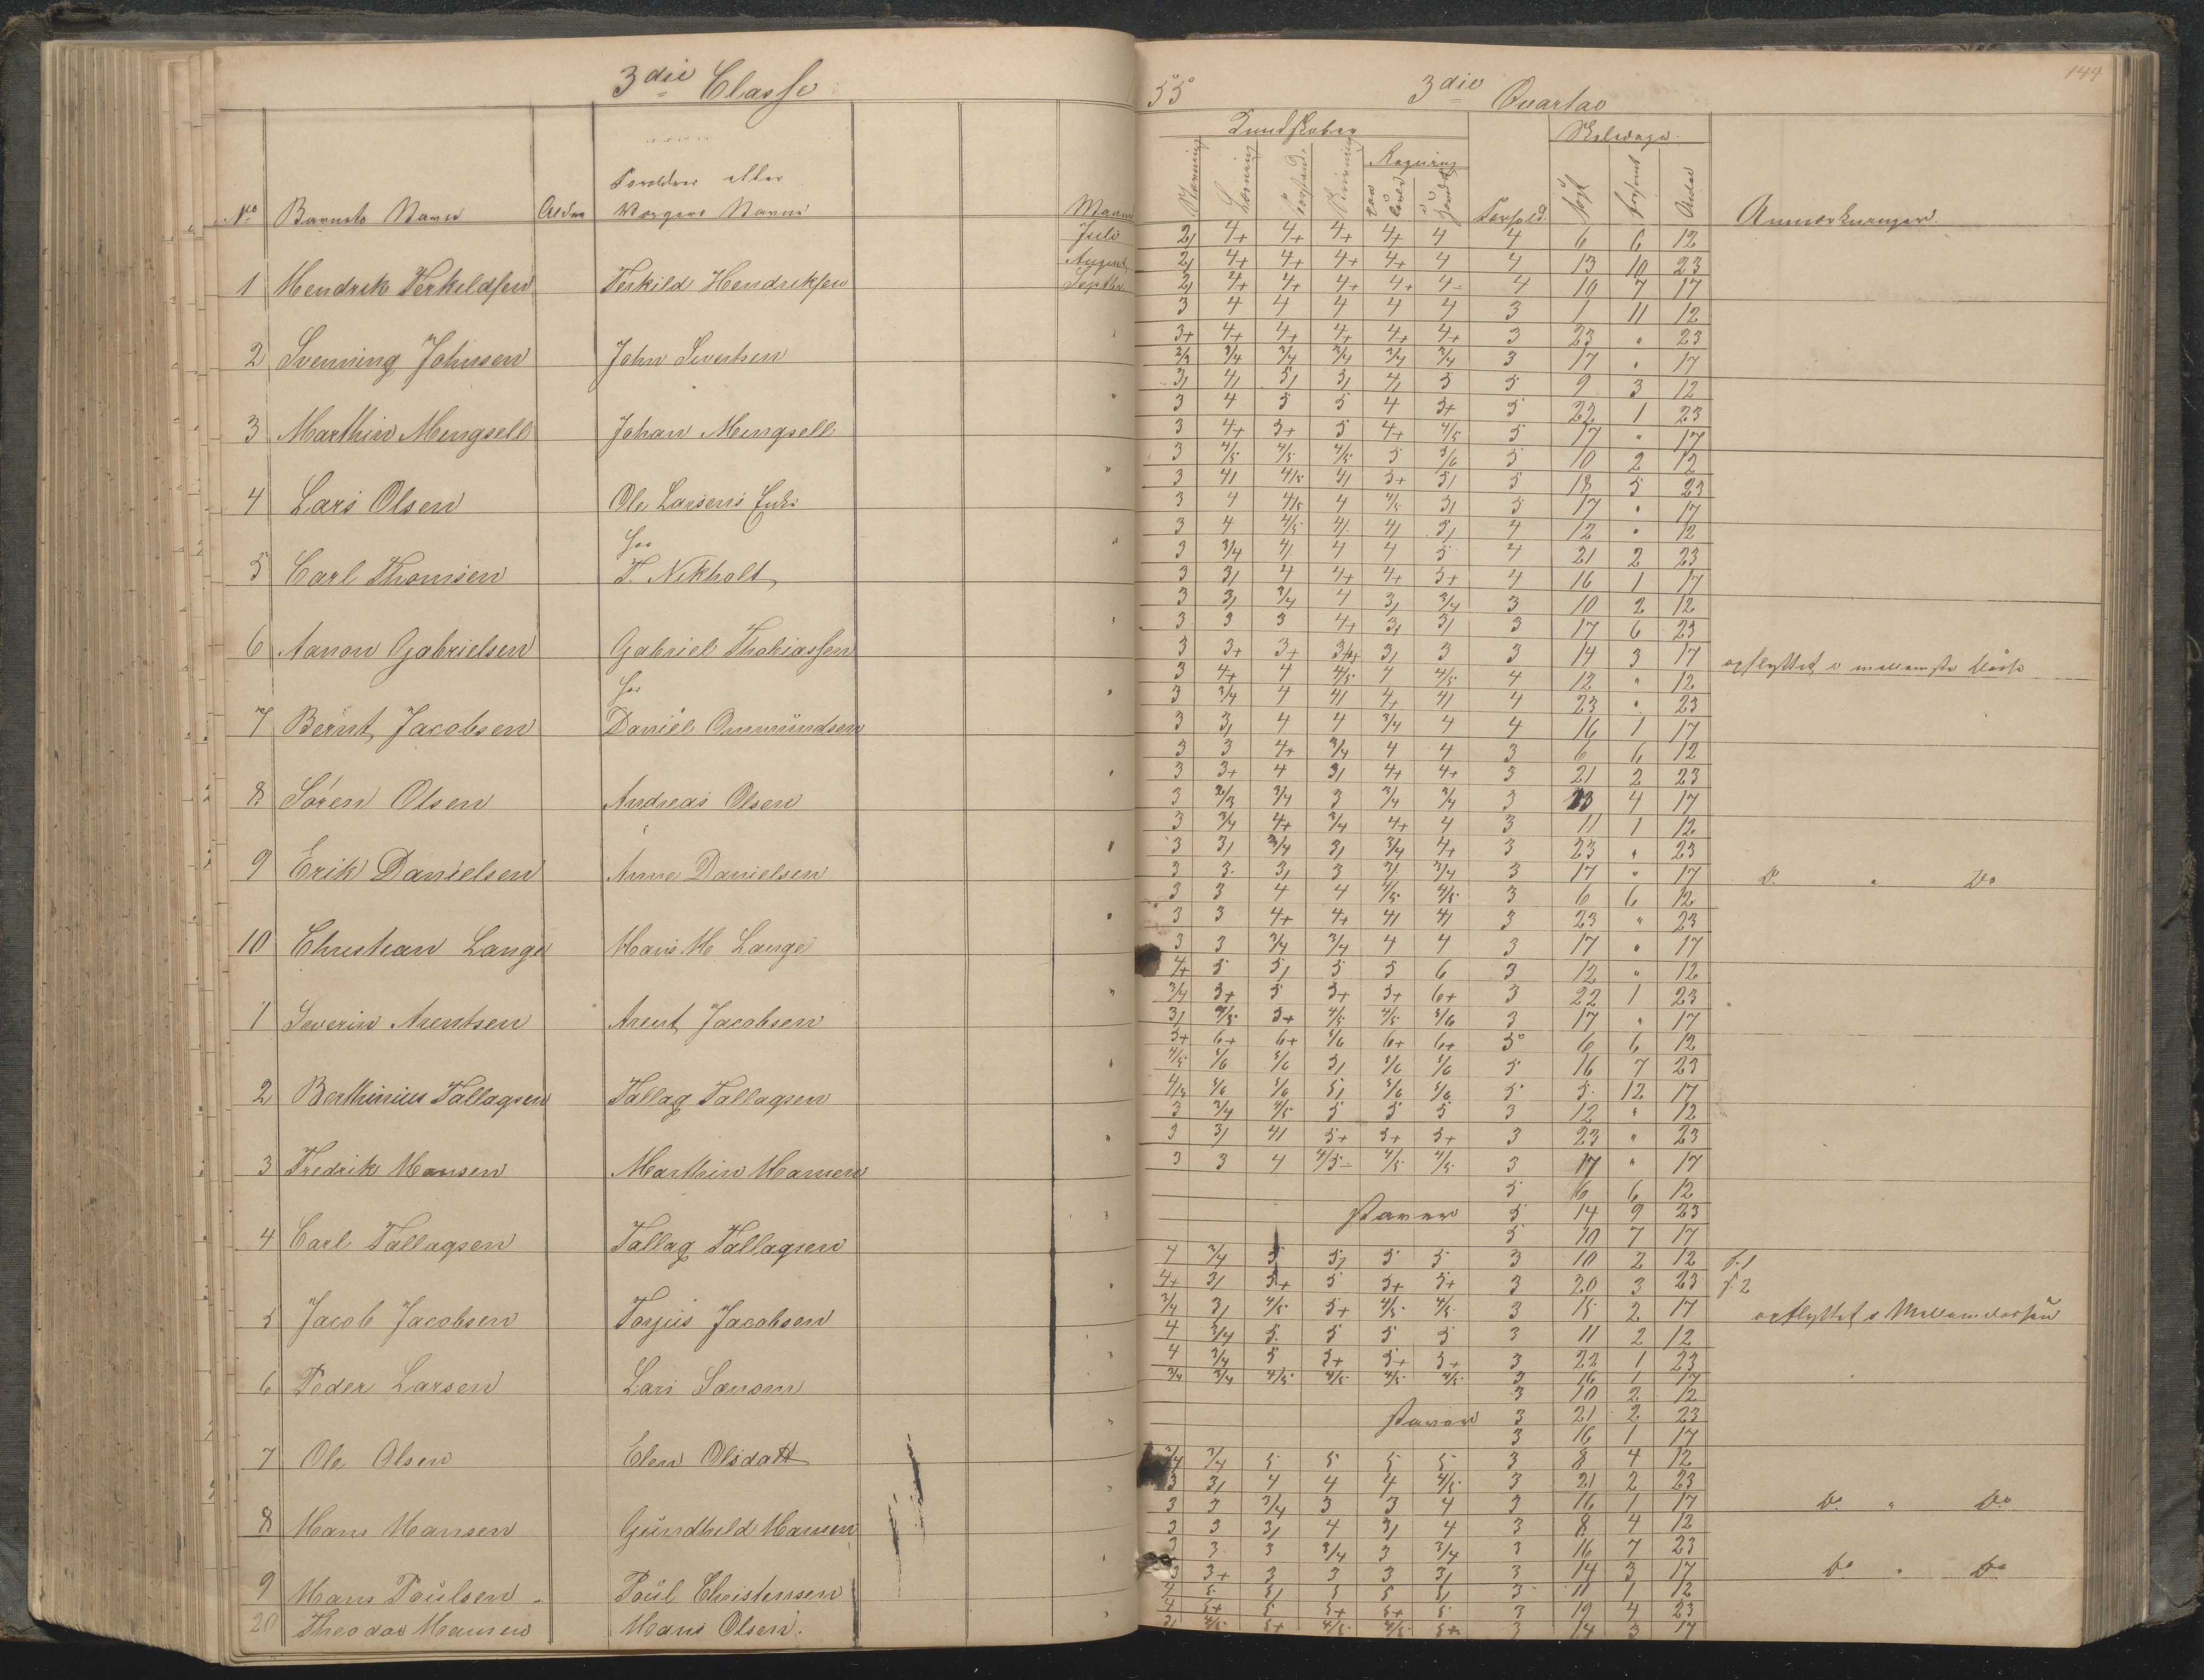 3die Classe
No Barnets Navn Alder Forældres eller
Vorgers Navne Maaned
Juli
August
Septbr.
1 Hendrik Terkildsen Terkild Hendriksen
2 Svenning Johnsen John Sivertsen
3 Marthin Mengsell Johan Mengsell
4 Lars Olsen Ole Larsens Enke
5 Carl Thomsen hos
T. Nikholt
6 Aanon Gabrielsen Gabriel Thobiassen
7 Bernt Jacobsen hos
Daniel Osmundsen
8 Sören Olsen Andreas Olsen
9 Erik Danielsen Anne Danielsen
10 Christian Lange Hans H Lange
1 Severin Arentsen Arent Jacobsen
2 Berthinius Tallagsen Tallag Tallagsen
3 Fredrik Hansen Marthin Hansen
4 Carl Tallagsen Tallag Tallagsen
5 Jacob Jacobsen Torjus Jacobsen
6 Peder Larsen Lars
7 Ole Olsen Elen Olsdatt
8 Hans Hansen Gundhild Hansen
9 Hans Poulsen Poul Christensen
20 Theodor Hansen Hans Olsen.
55 3die Qvartal 144
Kundskaber Skoledage
Regning
Forhold. Anmærkninger.
2/ 4+ 4+ 4+ 4+ 4 4 6 6 12
2/ 4+ 4+ 4+ 4+ 4 4 13 10 23
2/ 4+ 4+ 4+ 4+ 4- 4 10 7 17
3 4 4 4 4 4 3 1 11 12
3+ 4+ 4+ 4+ 4+ 4+ 3 23 " 23
2/3 3/4 3/4 3/4 3/4 3/4 3 17 " 17
3/ 4/ 5/ 5/ 4/ 5 5 9 3 12
3 4 5 5 4 5+ 5 22 1 23
3 4+ 5+ 5 4+ 4/5 5 17 " 17
3 4/5 4/5 4/5 5 5/6 5 10 2 12
3 4/ 4/5 5/ 5+ 5/ 5 18 5 23
3 4 4/5 4 4/5 5/ 5 17 " 17
3 4 4/5 4/ 4/ 5/ 4 12 " 12
3 3/4 4/ 4 4 5 4 21 2 23
3 3/ 4 4+ 4+ 5+ 4 16 1 17
3 3/ 3/4 4 3/ 3/4 3 10 2 12
3 3 3 4+ 3/ 3/ 3 17 6 23
3 3+ 3+ 3/4 3/ 3 3 14 3 17
3 4+ 4 4/5 4 4/5 4 12 " 12
3 3/4 4 4/ 4+ 4/ 4 23 " 23
3 3/ 4 4 3/4 4 4 16 1 17
3 3 4+ 3/4 4 4 3 6 6 12
3 3+ 4 3/ 4+ 4+ 3 21 2 23
3 2/3 3/4 3 3/4 3/4 3 13 4 17
3 3/4 4+ 3/4 4+ 4 3 11 1 12
3 3/ 3/4 3/ 3/4 4+ 3 23 " 23
3 3 3/ 3 3/ 3/4 3 17 " 17 Do " Do
3 3 4 4 4/5 4/5 3 6 6 12
3 3 4+ 4+ 4/ 4/ 3 23 " 23
3 3 3/4 3/4 4 4 3 17 " 17
4+ 5 5/ 5 5 6 3 12 " 12
3/4 5+ 5 5+ 5+ 6+ 3 22 1 23
3/ 4/5 5+ 4/5 4/5 5/6 3 17 " 17
5+ 6+ 6+ 5/6 6+ 6+ 5 6 6 12
4/5 5/6 5/6 5/ 5/6 5/6 5 16 7 23
4/5 5/6 5/6 5/ 5/6 5/6 5 5 12 17
3 3/4 4/5 5 5 5 3 12 " 12
3 3/ 4/ 5+ 5+ 5+ 3 23 " 23
3 3 4 4/5- 4/5 4/5 3 17 " 17
5 6 6 12
Staver 5 14 9 23
5 10 7 17
4 3/4 5 5/ 5 5 3 10 2 12
4+ 3/ 5+ 5 5+ 5+ 3 20 3 23
3/4 3/ 4/5 5+ 4/5 4/5 3 15 2 17
4 3/4 5 5 5 5 3 11 2 12
4 3/4 5 5+ 5+ 5+ 3 22 1 23
3/4 3/4 4/5 4/5 4/5 4/5 3 16 1 17
3 10 2 12
Staver 3 21 2 23
3 16 1 17
3/4 3/4 5 5 5 5 3 8 4 12
3 3/ 4 4 4 4/5 3 21 2 23
3 3 3/4 3 3 4 3 16 1 17 Do " Do
3 3 3/ 4 3/ 4 3 8 4 12
3 3 3 3/4 3 3/4 3 16 7 23
3 3+ 3 3 3 3/ 3 14 3 17 Do " Do
4 5 5/ 5 5 5/ 3 11 1 12
4 5+ 5 5+ 5+ 5 3 19 4 23
3/ 4/5 5+ 4/5 4/5 5+ 3 14 3 17